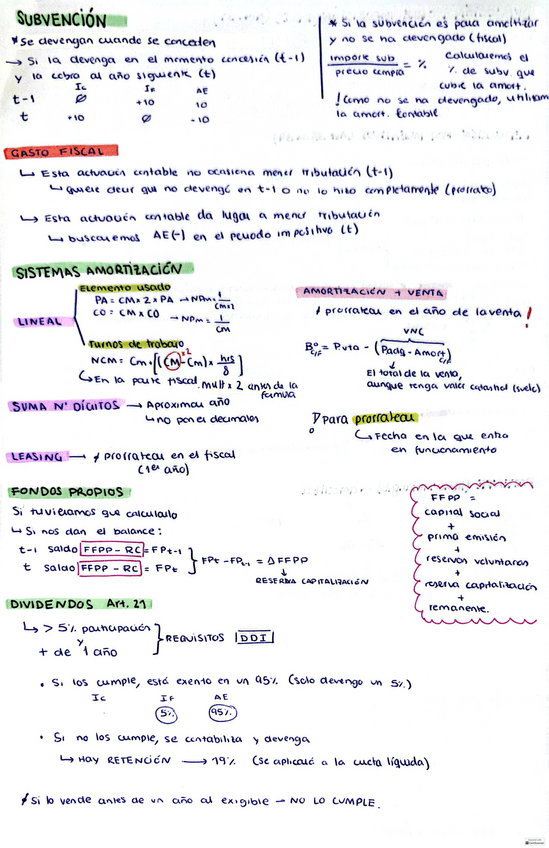 SUBVENCIÓN
* Se devengan cuando se conceden
→ Si la devenga en el momento concesión (t-1)
y la cobra al año siguiente (t)
Ic IF AE
t-1 Ø +10 10
t +10 Ø -10
* Si la subvención es para amortizar
y no se ha devengado (fiscal)
importe sub / precio compra = % Calcularemos el
% de subv que
cubre la amort.
! Como no se ha devengado, utilizam
la amort. contable
GASTO FISCAL
↳ Esta actuación contable no ocasiona menor tributación (t-1)
↳ quiere decir que no devengó en t-1 o no lo hizo completamente (prorrateo)
↳ Esta actuación contable da lugar a menor tributación
↳ buscaremos AE(-) en el periodo impositivo (t)
SISTEMAS AMORTIZACIÓN
LINEAL
Elemento usado
PA = CM x 2 x PA → NPm = 1/(CMx2)
CO = CM x CO → NPm = 1/CM
Turnos de trabajo
NCM = Cm + [(CM x2 - Cm) x hrs/8]
↳ En la parte fiscal mult x 2 antes de la
fórmula
SUMA Nº DÍGITOS → Aproximar año
↳ no poner decimales
LEASING → prorratear en el fiscal
(1er año)
AMORTIZACIÓN + VENTA
prorratear en el año de la venta!
VNC
Bº C/F = Pvta - (Padq - Amort C/F)
El total de la venta,
aunque tenga valor catastral (suelo)
Para prorratear
↳ Fecha en la que entra
en funcionamiento
FONDOS PROPIOS
Si tuviéramos que calcularlo
↳ Si nos dan el balance:
t-1 saldo FFPP - RC = FPt-1
t saldo FFPP - RC = FPt
FPt - FPt-1 = ΔFFPP
↓
RESERVA CAPITALIZACIÓN
FFPP =
capital social
+
prima emisión
+
reservas voluntarias
+
reserva capitalización
+
remanente.
DIVIDENDOS Art. 21
↳ > 5% participación
y
+ de 1 año
REQUISITOS DDI
• Si los cumple, está exento en un 95% (solo devengo un 5%)
Ic IF AE
5% 95%
• Si no los cumple, se contabiliza y devenga
↳ Hay RETENCIÓN → 19% (se aplicará a la cuota líquida)
Si lo vende antes de un año al exigible — NO LO CUMPLE.